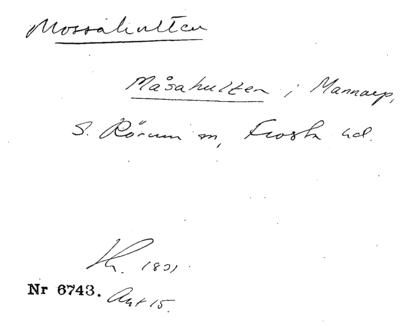 Mossahulten
Måsahulten i Mannarp,
S. Rörum sn, Frosta hd.
1831
Nr 6743. Akt 15.